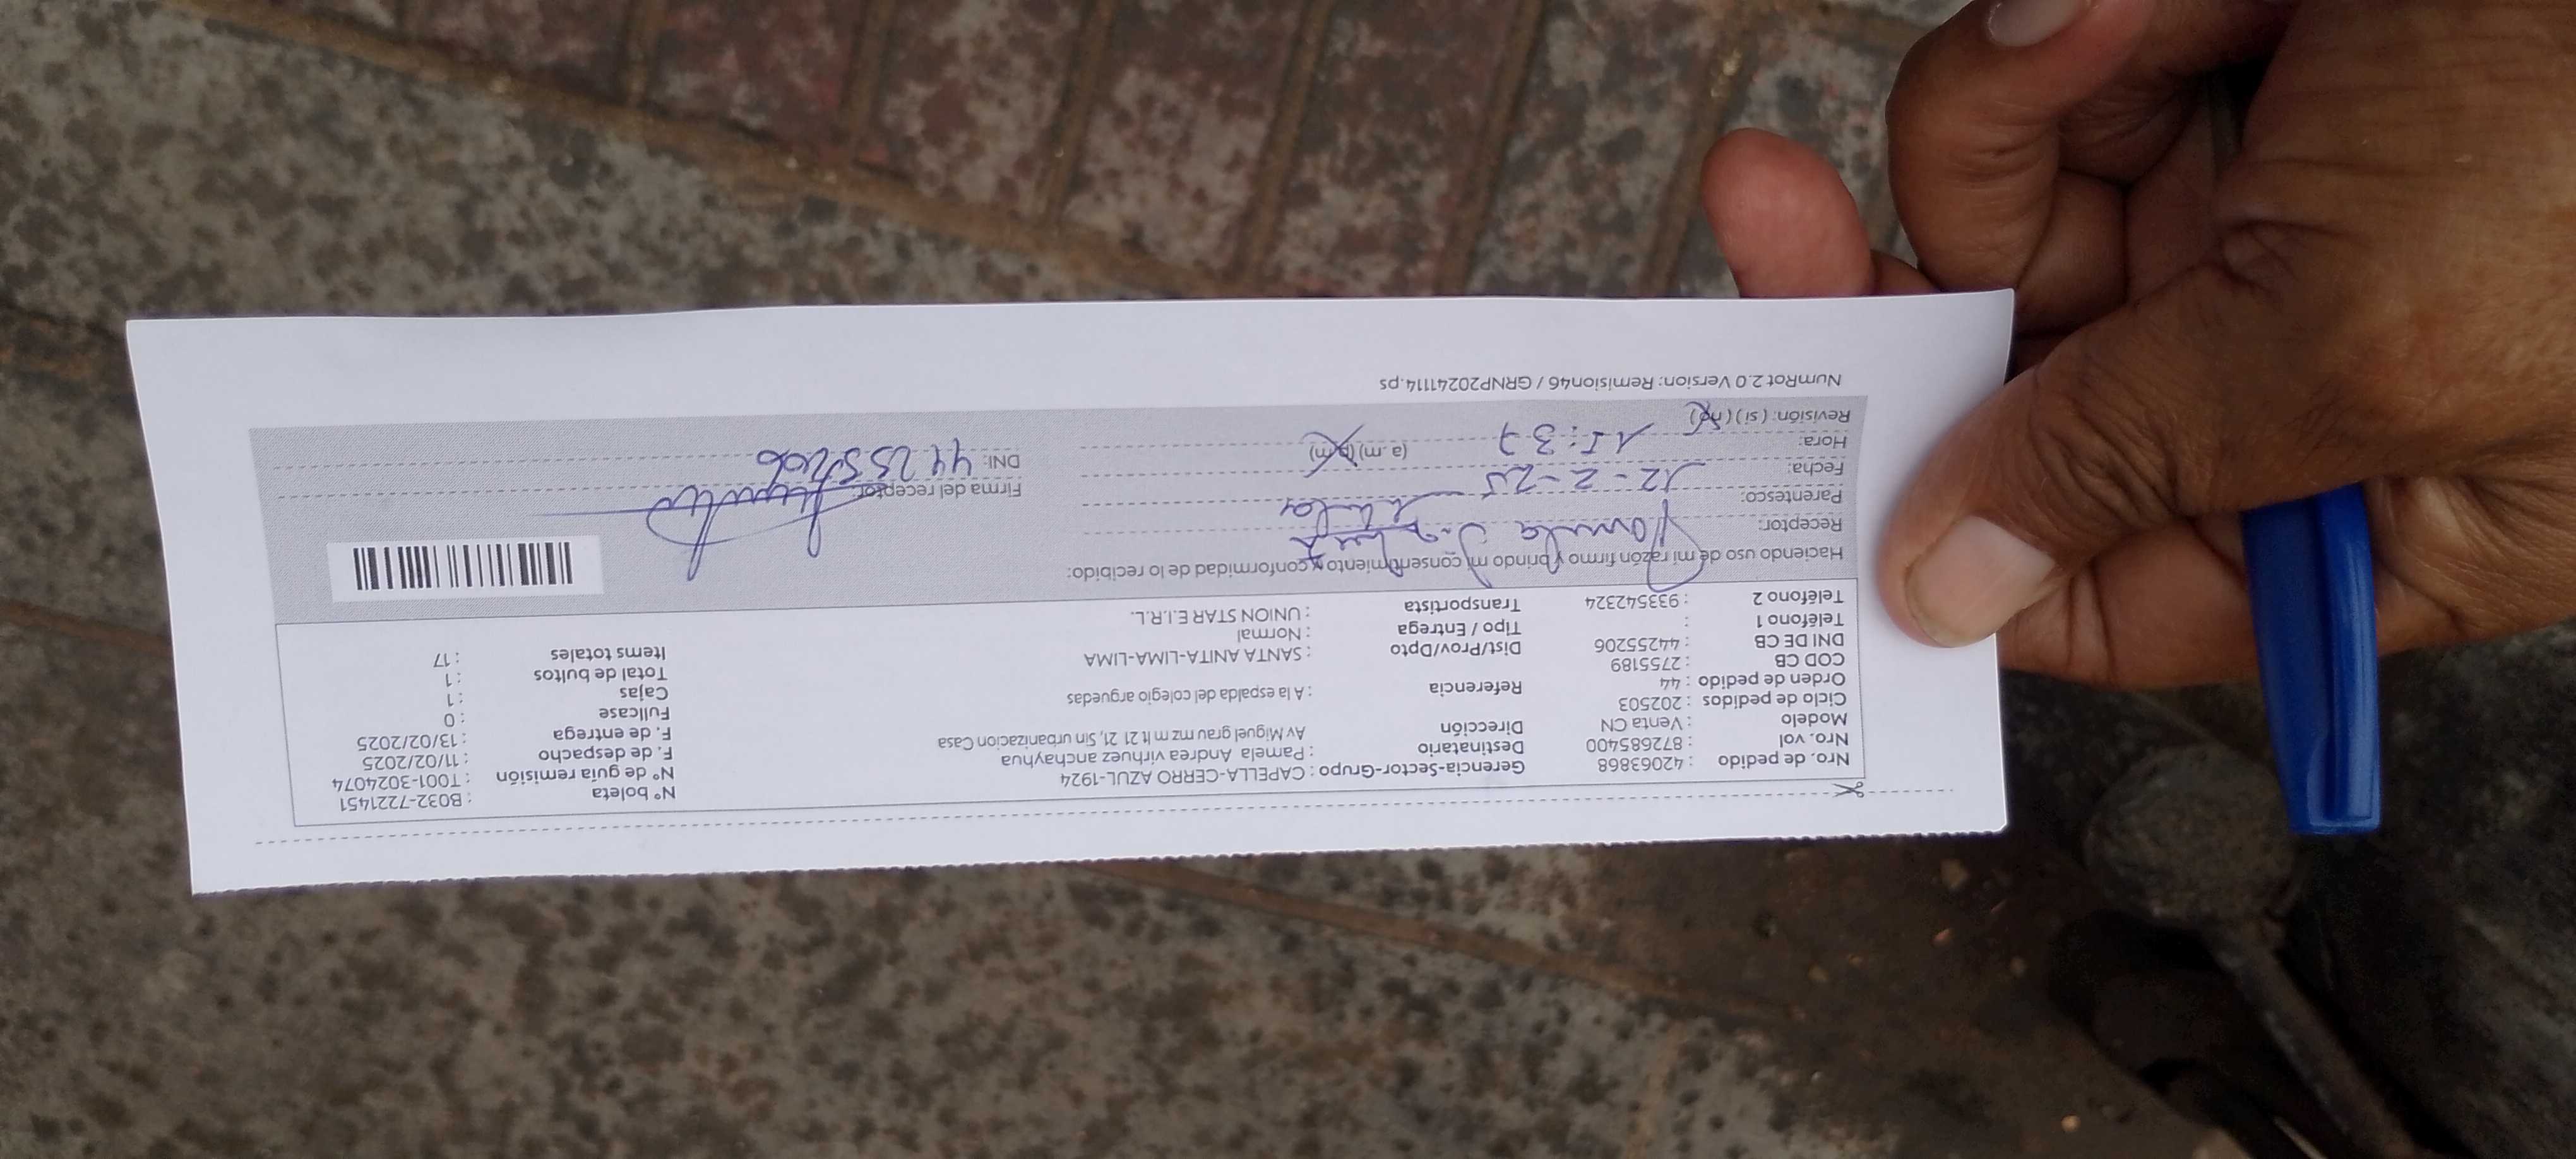 Nro. de pedido : 42063868 Gerencia-Sector-Grupo : CAPELLA-CERRO AZUL-1924 N° boleta : B032-7221451
Nro. vol : 872685400 Destinatario : Pamela Andrea virhuez anchayhua N° de guía remisión : T001-3024074
Modelo : Venta CN Dirección Av Miguel grau mz m lt 21 21, Sin urbanizacion Casa F. de despacho : 11/02/2025
Ciclo de pedidos : 202503 F. de entrega : 13/02/2025
Orden de pedido : 44 Referencia : A la espalda del colegio arguedas Fullcase : 0
COD CB : 2755189 Cajas : 1
DNI DE CB : 44255206 Dist/Prov/Dpto : SANTA ANITA-LIMA-LIMA Total de bultos : 1
Teléfono 1 : Tipo / Entrega : Normal Items totales : 17
Teléfono 2 : 933542324 Transportista : UNION STAR E.I.R.L.
Haciendo uso de mi razón firmo y brindo mi consentimiento y conformidad de lo recibido:
Receptor: Pamela
Parentesco: titular Firma del receptor:
Fecha: 12-2-25 DNI: 44255206
Hora: 15:37 (a.m) (p.m)
Revisión: (si) (no)
NumRot 2.0 Version: Remision46 / GRNP20241114.ps